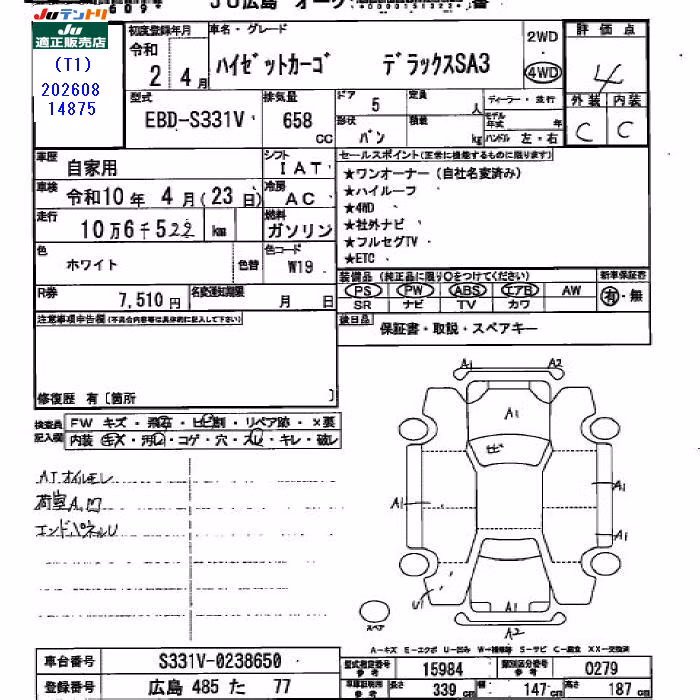 JU広島 オーク
JUテントリ
JU
適正販売店
(T1)
202608
14875
初度登録年月
令和
2年 4月
車名・グレード
ハイゼットカーゴ デラックスSA3
2WD
4WD
評価点
4
外装 内装
C C
型式
EBD-S331V
排気量
658 cc
ドア 5
定員 人
形状 バン
積載 kg
ディーラー・並行
モデル年式 年
ハンドル 左・右
車歴 自家用
シフト IAT
車検 令和10年 4月(23日)
冷房 AC
走行 10万6千522 km
燃料 ガソリン
色 ホワイト
色替
色コード W19
R券 7,510円
名変通知期限 月 日
セールスポイント(正常に機能するものに限ります)
★ワンオーナー(自社名変済み)
★ハイルーフ
★4WD
★社外ナビ
★フルセグTV
★ETC
装備品(純正品に限り○をつけてください)
新車保証書
PS PW ABS エアB AW
有・無
SR ナビ TV カワ
後日品
保証書・取説・スペアキー
注意事項申告欄(不具合内容等は具体的に記入して下さい)
修復歴 有〔箇所 〕
検査員記入欄
FW キズ・飛石・ヒビ割・リペア跡・×要
内装 キズ・汚レ・コゲ・穴・スレ・キレ・破レ
ATオイルモレ
荷室A,凹
エンドパネルU
A1 A2
A1
ヒビ
A1 A1
A1
U1 A1
A2
スペア
A-キズ E-エクボ U-凹み W-補修等 S-サビ C-腐食 XX-交換済
車台番号 S331V-0238650
型式指定番号 参考 15984
類別区分番号 参考 0279
登録番号 広島 485 た 77
車庫証明用 参考 長さ 339 cm 幅 147 cm 高さ 187 cm